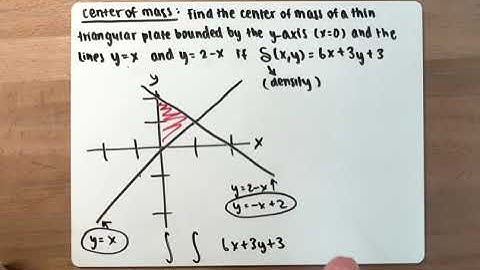 center of mass: Find the center of mass of a thin
triangular plate bounded by the y-axis (x=0) and the
lines y=x and y=2-x if δ(x,y)=6x+3y+3
(density)
y
x
y=2-x
y=-x+2
y=x
∫ ∫ 6x+3y+3